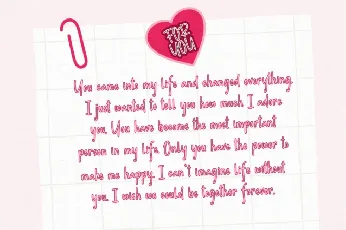 FOR
YOU
You came into my life and changed everything.
I just wanted to tell you how much I adore
you. You have become the most important
person in my life. Only you have the power to
make me happy. I can't imagine life without
you. I wish we could be together forever.